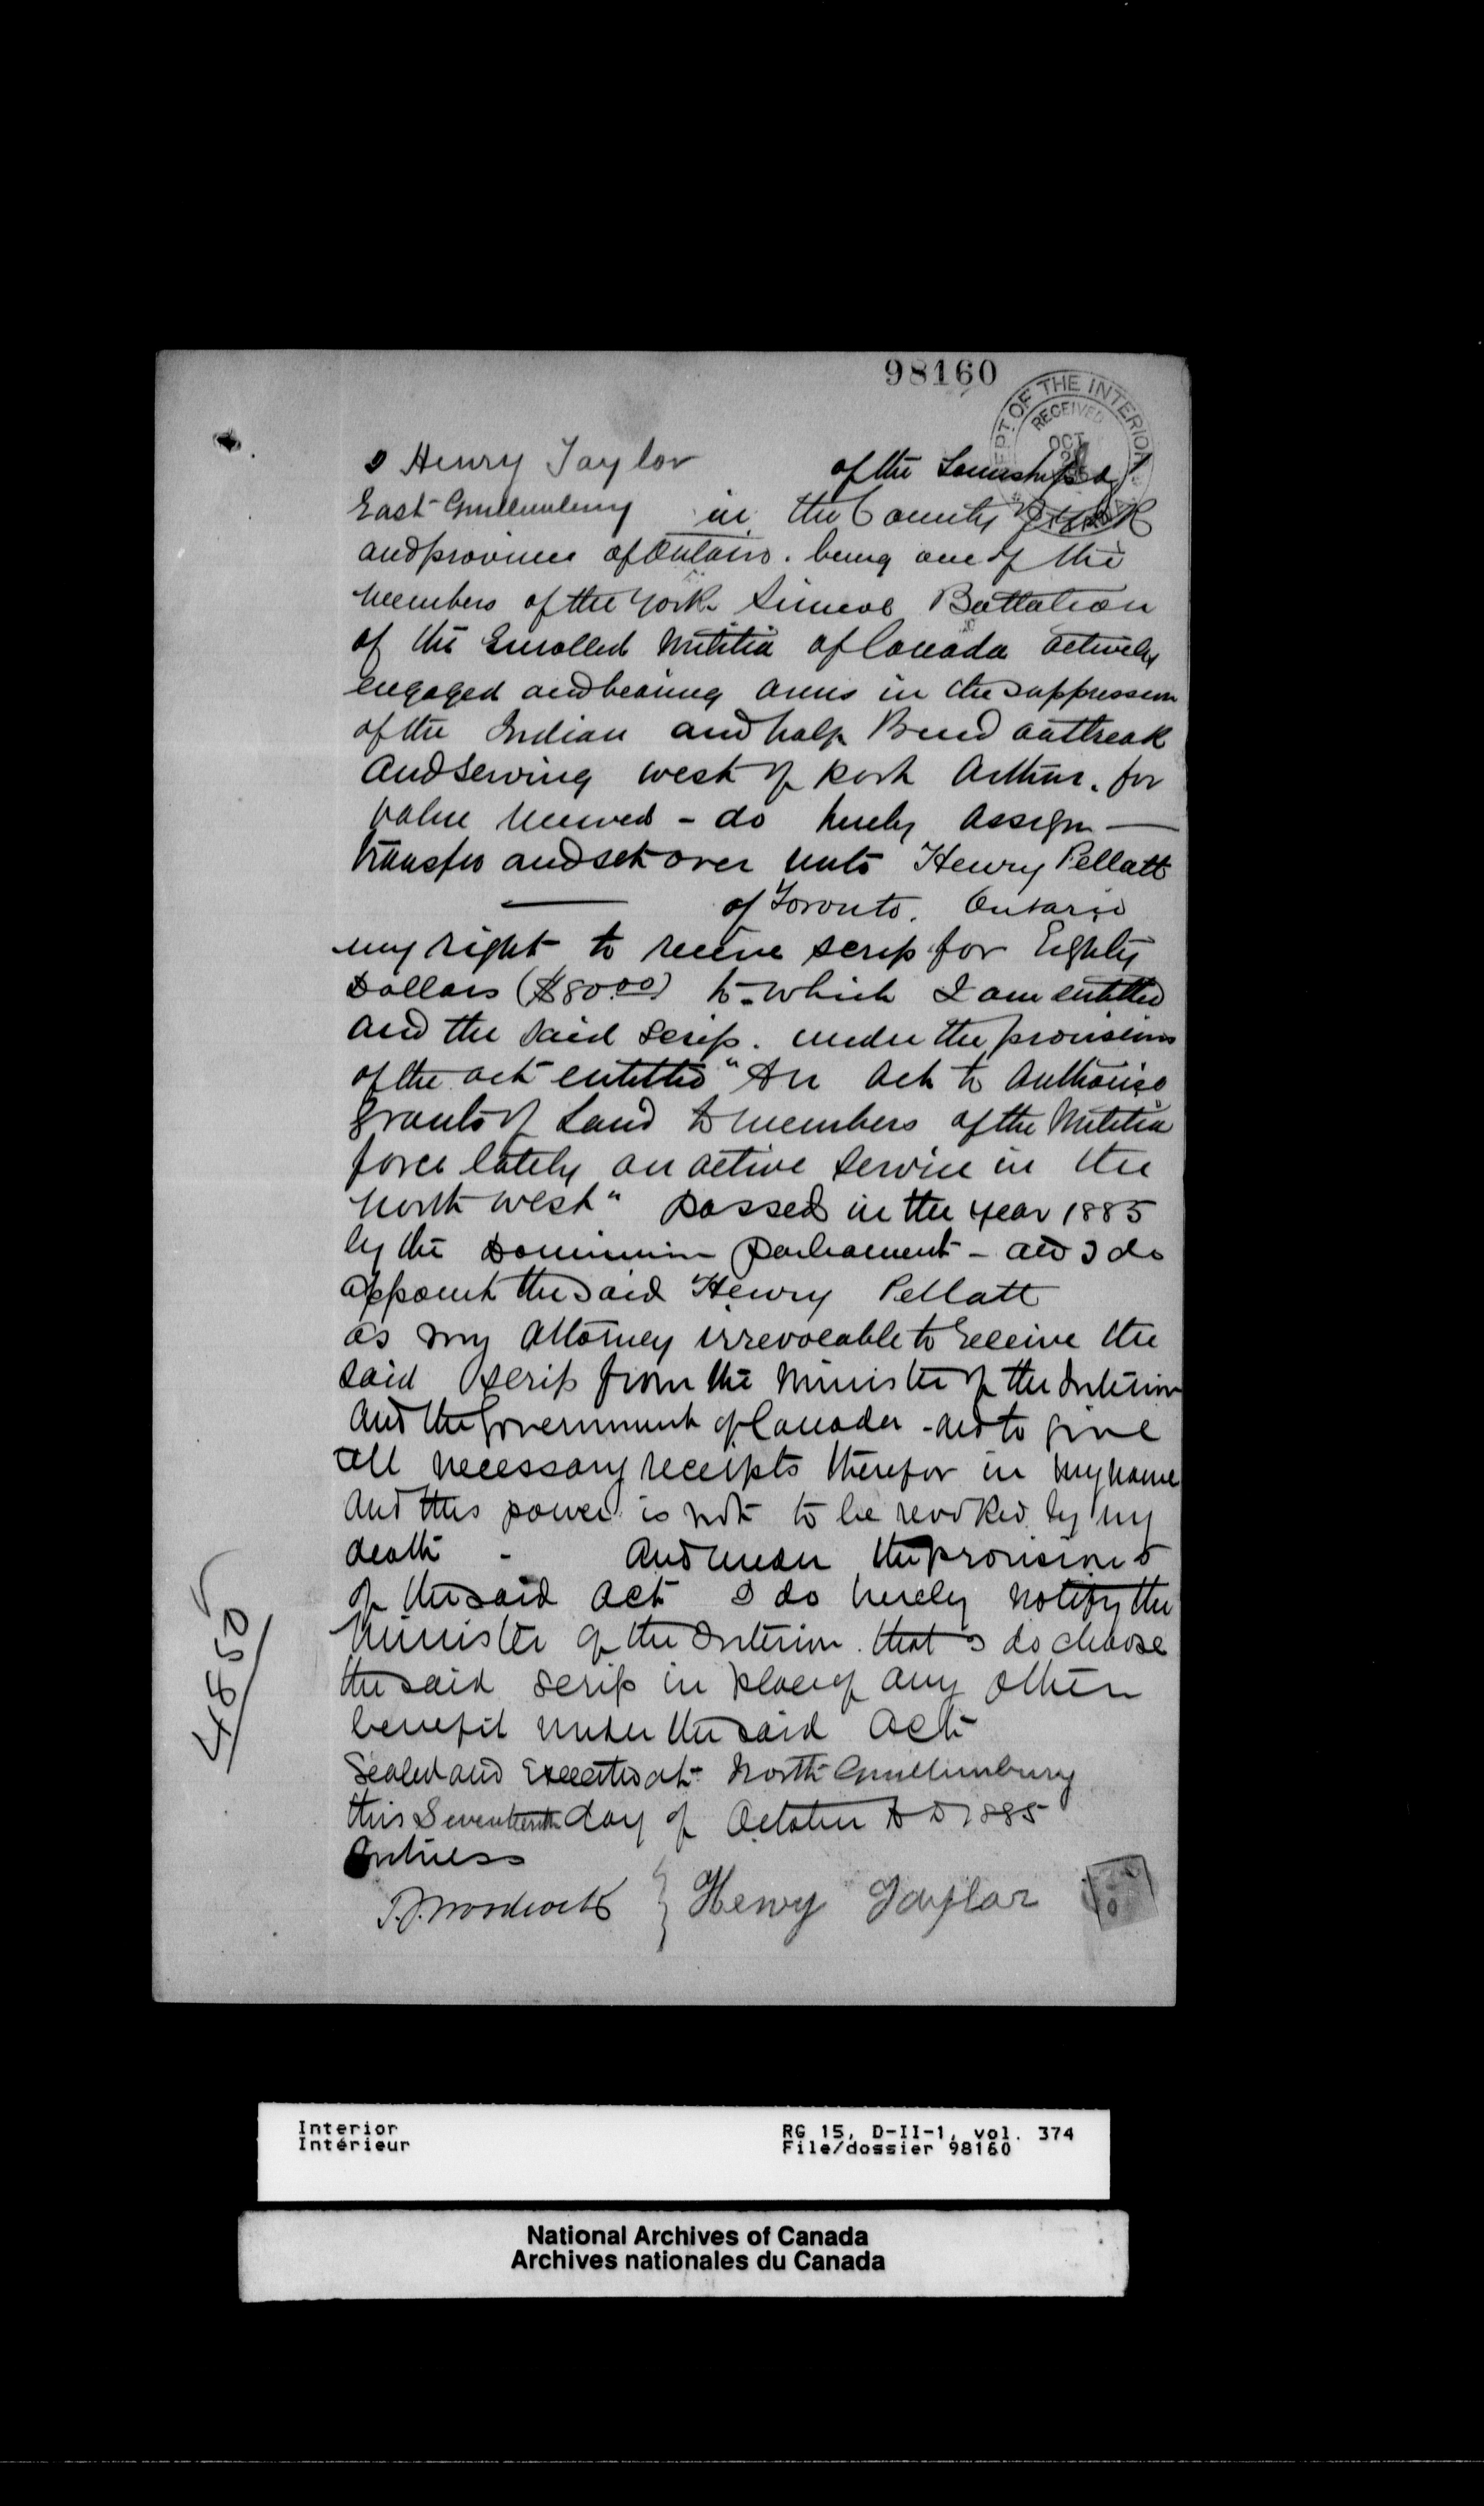 98160
DEPT. OF THE INTERIOR
RECEIVED
OCT
I Henry Taylor of the Township of
East Gwillimbury in the County of York
and province of Ontario. being one of the
members of the York Simcoe Battalion
of the Enrolled Militia of Canada actively
engaged and bearing arms in the suppression
of the Indian and half Breed outbreak
and serving west of Port Arthur. for
value received - do hereby assign —
transfer and set over unto Henry Pellatt
— of Toronto. Ontario
my right to receive scrip for Eighty
Dollars ($80.00) to which I am entitled
and the said scrip. under the provisions
of the act entitled "An Act to Authorise
grants of Land to members of the Militia
force lately on active service in the
North West" passed in the year 1885
by the Dominion Parliament - and I do
appoint the said Henry Pellatt
as my Attorney irrevocable to receive the
said scrip from the Minister of the Interior
and the Government of Canada - and to give
all necessary receipts therefor in my name
and this power is not to be revoked by my
death - And under the provisions
of the said Act I do hereby notify the
Minister of the Interior. that I do choose
the said scrip in place of any other
benefit under the said Act
Sealed and Executed at North Gwillimbury
this Seventeenth day of October A D 1885
Witness
Henry Taylor
4850
Interior
Intérieur
RG 15, D-II-1, vol. 374
File/dossier 98160
National Archives of Canada
Archives nationales du Canada